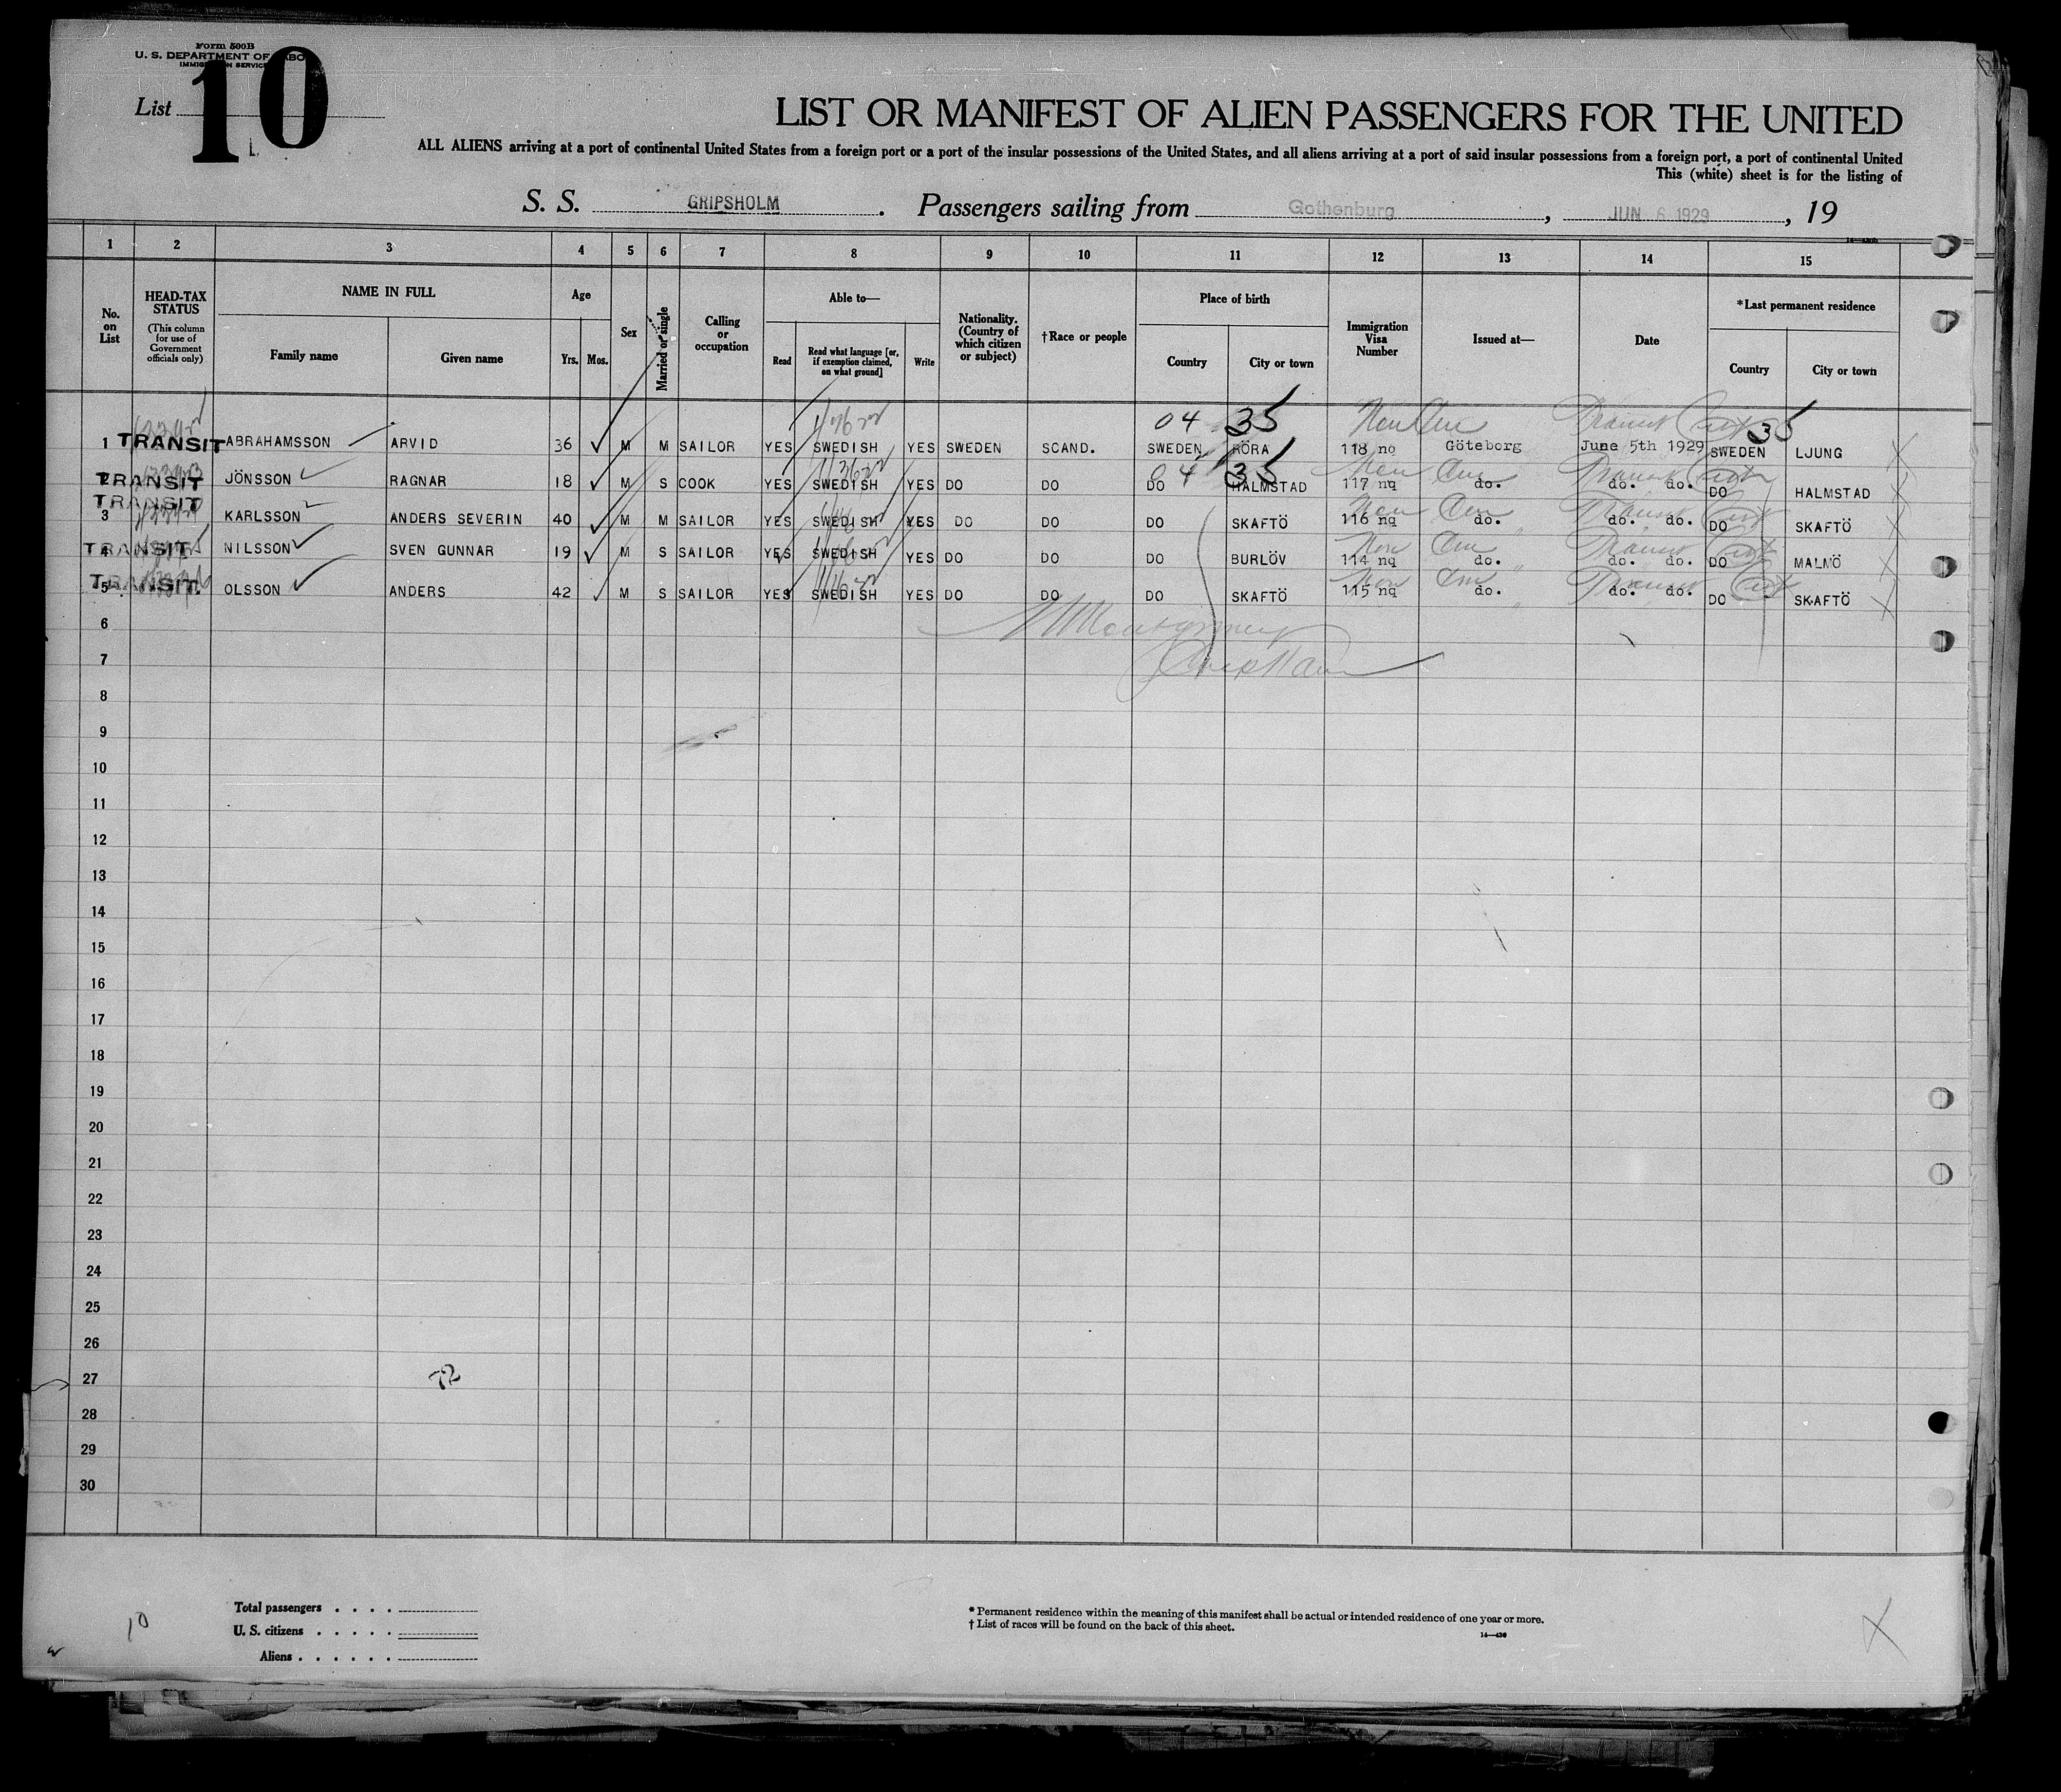 Form 500B
U. S. DEPARTMENT OF LABOR
IMMIGRATION SERVICE
List 10
LIST OR MANIFEST OF ALIEN PASSENGERS FOR THE UNITED
ALL ALIENS arriving at a port of continental United States from a foreign port or a port of the insular possessions of the United States, and all aliens arriving at a port of said insular possessions from a foreign port, a port of continental United
This (white) sheet is for the listing of
S. S. GRIPSHOLM. Passengers sailing from Gothenburg, JUN 6 1929, 19
1 2 3 4 5 6 7 8 9 10 11 12 13 14 15
No. on List
HEAD-TAX STATUS (This column for use of Government officials only)
NAME IN FULL
Family name Given name
Age
Yrs. Mos.
Sex
Married or single
Calling or occupation
Able to—
Read Read what language [or, if exemption claimed, on what ground] Write
Nationality. (Country of which citizen or subject)
†Race or people
Place of birth
Country City or town
Immigration Visa Number
Issued at—
Date
*Last permanent residence
Country City or town
04 35 Non Im Transit 35
1 TRANSIT ABRAHAMSSON ARVID 36 M M SAILOR YES SWEDISH YES SWEDEN SCAND. SWEDEN RÖRA 118 nq Göteborg June 5th 1929 SWEDEN LJUNG
04 35
2 TRANSIT JÖNSSON RAGNAR 18 M S COOK YES SWEDISH YES DO DO DO HALMSTAD 117 nq do. do. do. DO HALMSTAD
3 TRANSIT KARLSSON ANDERS SEVERIN 40 M M SAILOR YES SWEDISH YES DO DO DO SKAFTÖ 116 nq do. do. do. DO SKAFTÖ
4 TRANSIT NILSSON SVEN GUNNAR 19 M S SAILOR YES SWEDISH YES DO DO DO BURLÖV 114 nq do. do. do. DO MALMÖ
5 TRANSIT. OLSSON ANDERS 42 M S SAILOR YES SWEDISH YES DO DO DO SKAFTÖ 115 nq do. do. do. DO SKAFTÖ
6
7
8
9
10
11
12
13
14
15
16
17
18
19
20
21
22
23
24
25
26
27
28
29
30
10
Total passengers
U. S. citizens
Aliens
* Permanent residence within the meaning of this manifest shall be actual or intended residence of one year or more.
† List of races will be found on the back of this sheet.
14—430